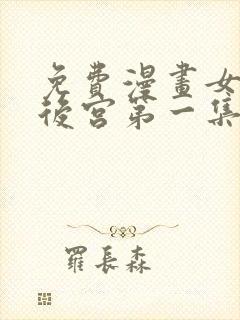 免費漫畫女
後宮第一集
羅長森